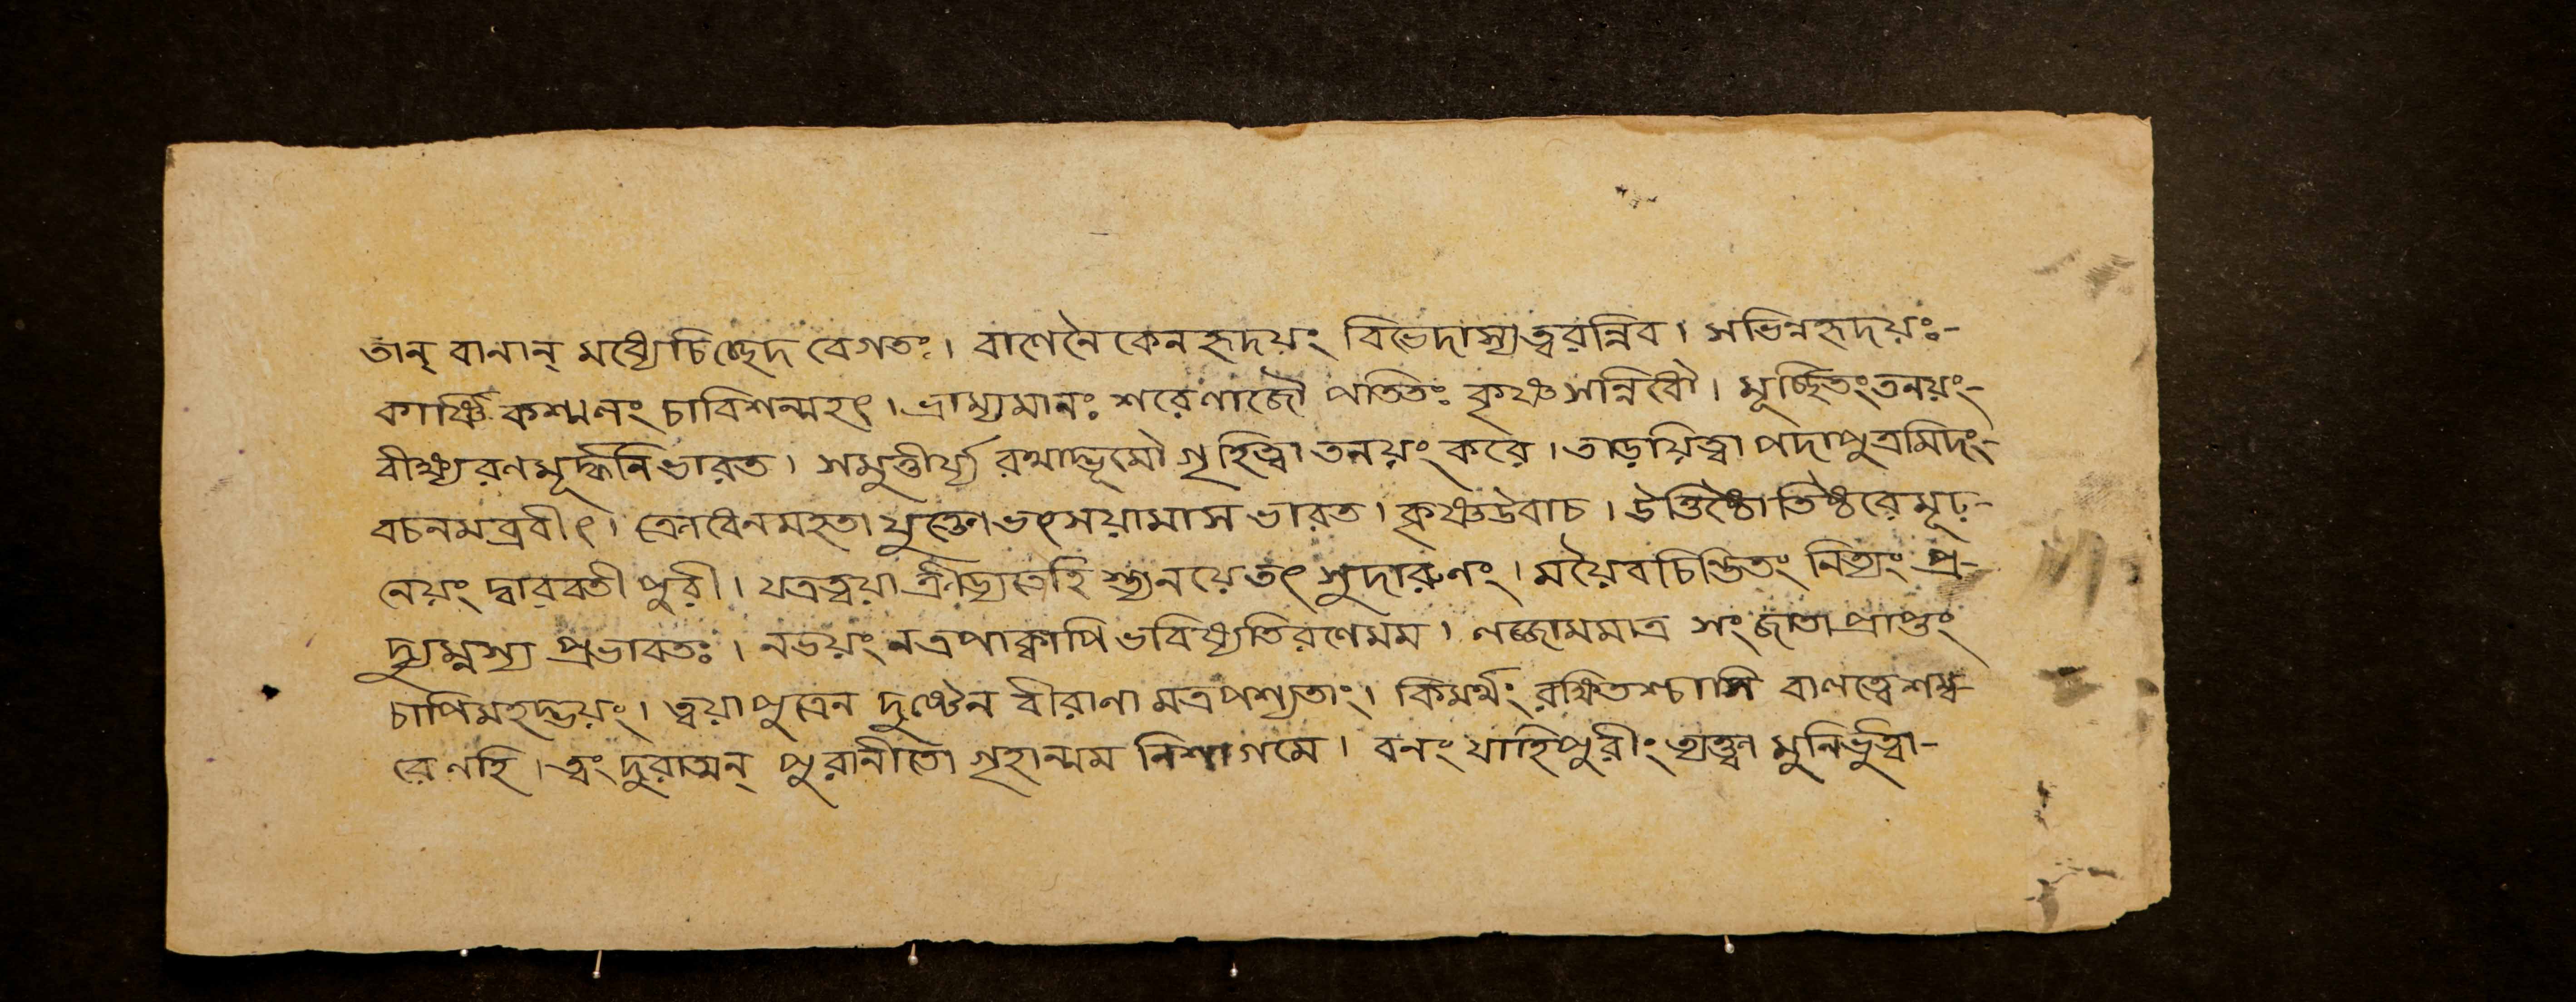 তান্ বানান্ মধ্যেচিচ্ছেদ বেগতঃ। বাণেনৈকেনহৃদয়ং বিভেদাস্যত্বরন্নিব। সভিন্নহৃদয়ঃ-
কার্ষ্ণি কশ্মলং চাবিশন্মহৎ। ভ্রাম্যমানঃ শরেণাজৌ পতিতঃ কৃষ্ণসন্নিধৌ। মূর্চ্ছিতংতনয়ং-
বীক্ষ্যরণমূর্দ্ধনিভারত। সমুত্তীর্য্য রথাদ্ভূমৌ গৃহিত্বা তনয়ংকরে। তাড়য়িত্বা পদাপুত্রমিদং-
বচনমব্রবীৎ। ক্রোধেনমহতা যুক্তোভৎসয়ামাস ভারত। কৃষ্ণউবাচ। উত্তিষ্ঠোত্তিষ্ঠরেমূঢ়-
নেয়ং দ্বারবতী পুরী। যত্রত্বয়া ক্রীড্যতেহি সুদারুণং। ময়ৈবচিন্তিতং নিত্যং প্র-
দ্যুম্নস্য প্রভাবতঃ। নভয়ং নত্রপাক্বাপি ভবিষ্যতিরণেমম। লজ্জামমাত্র সংজাতা প্রাপ্তং
চাপিমহদ্ভয়ং। ত্বয়াপুত্রেন দুষ্টেন বীরাণা মত্রপশ্যতাং। কিমর্থং রক্ষিতশ্চাসি বালত্বেশম্ব-
রেণহি। ত্বংদুরাত্মন্ পুরানীতো গৃহান্মম নিশাগমে। বনংযাহিপুরীংত্যক্ত্বা মুনির্ভুত্বা-